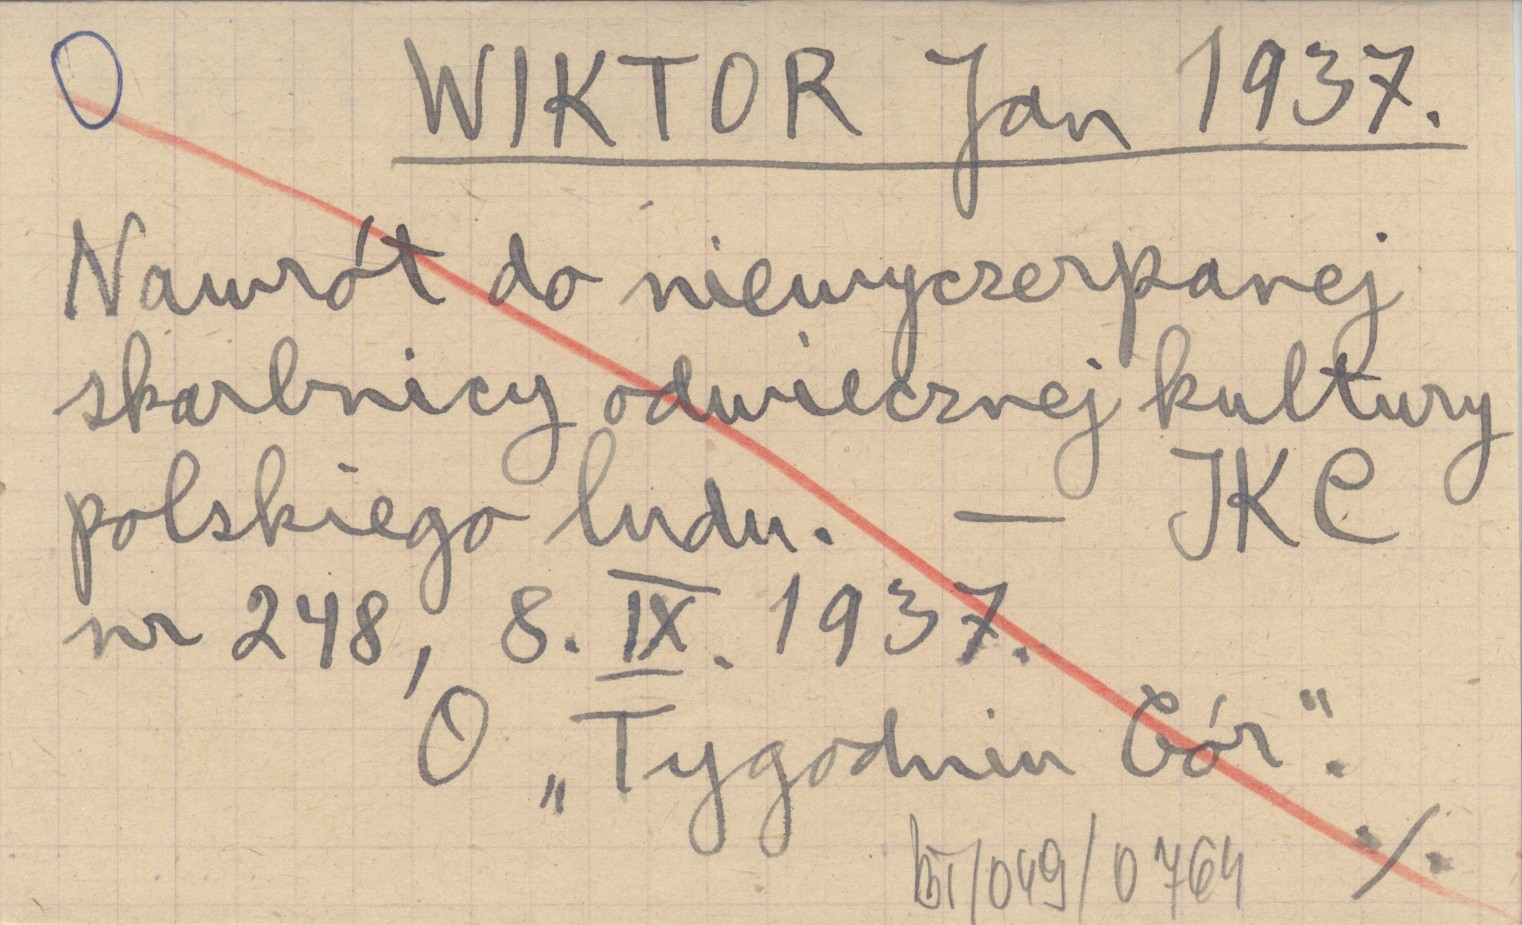 O WIKTOR Jan 1937.
Nawrót do niewyczerpanej
skarbnicy odwiecznej kultury
polskiego ludu. — IKC
nr 248, 8. IX. 1937.
O „Tygodniu Gór".
./.
/049/0764